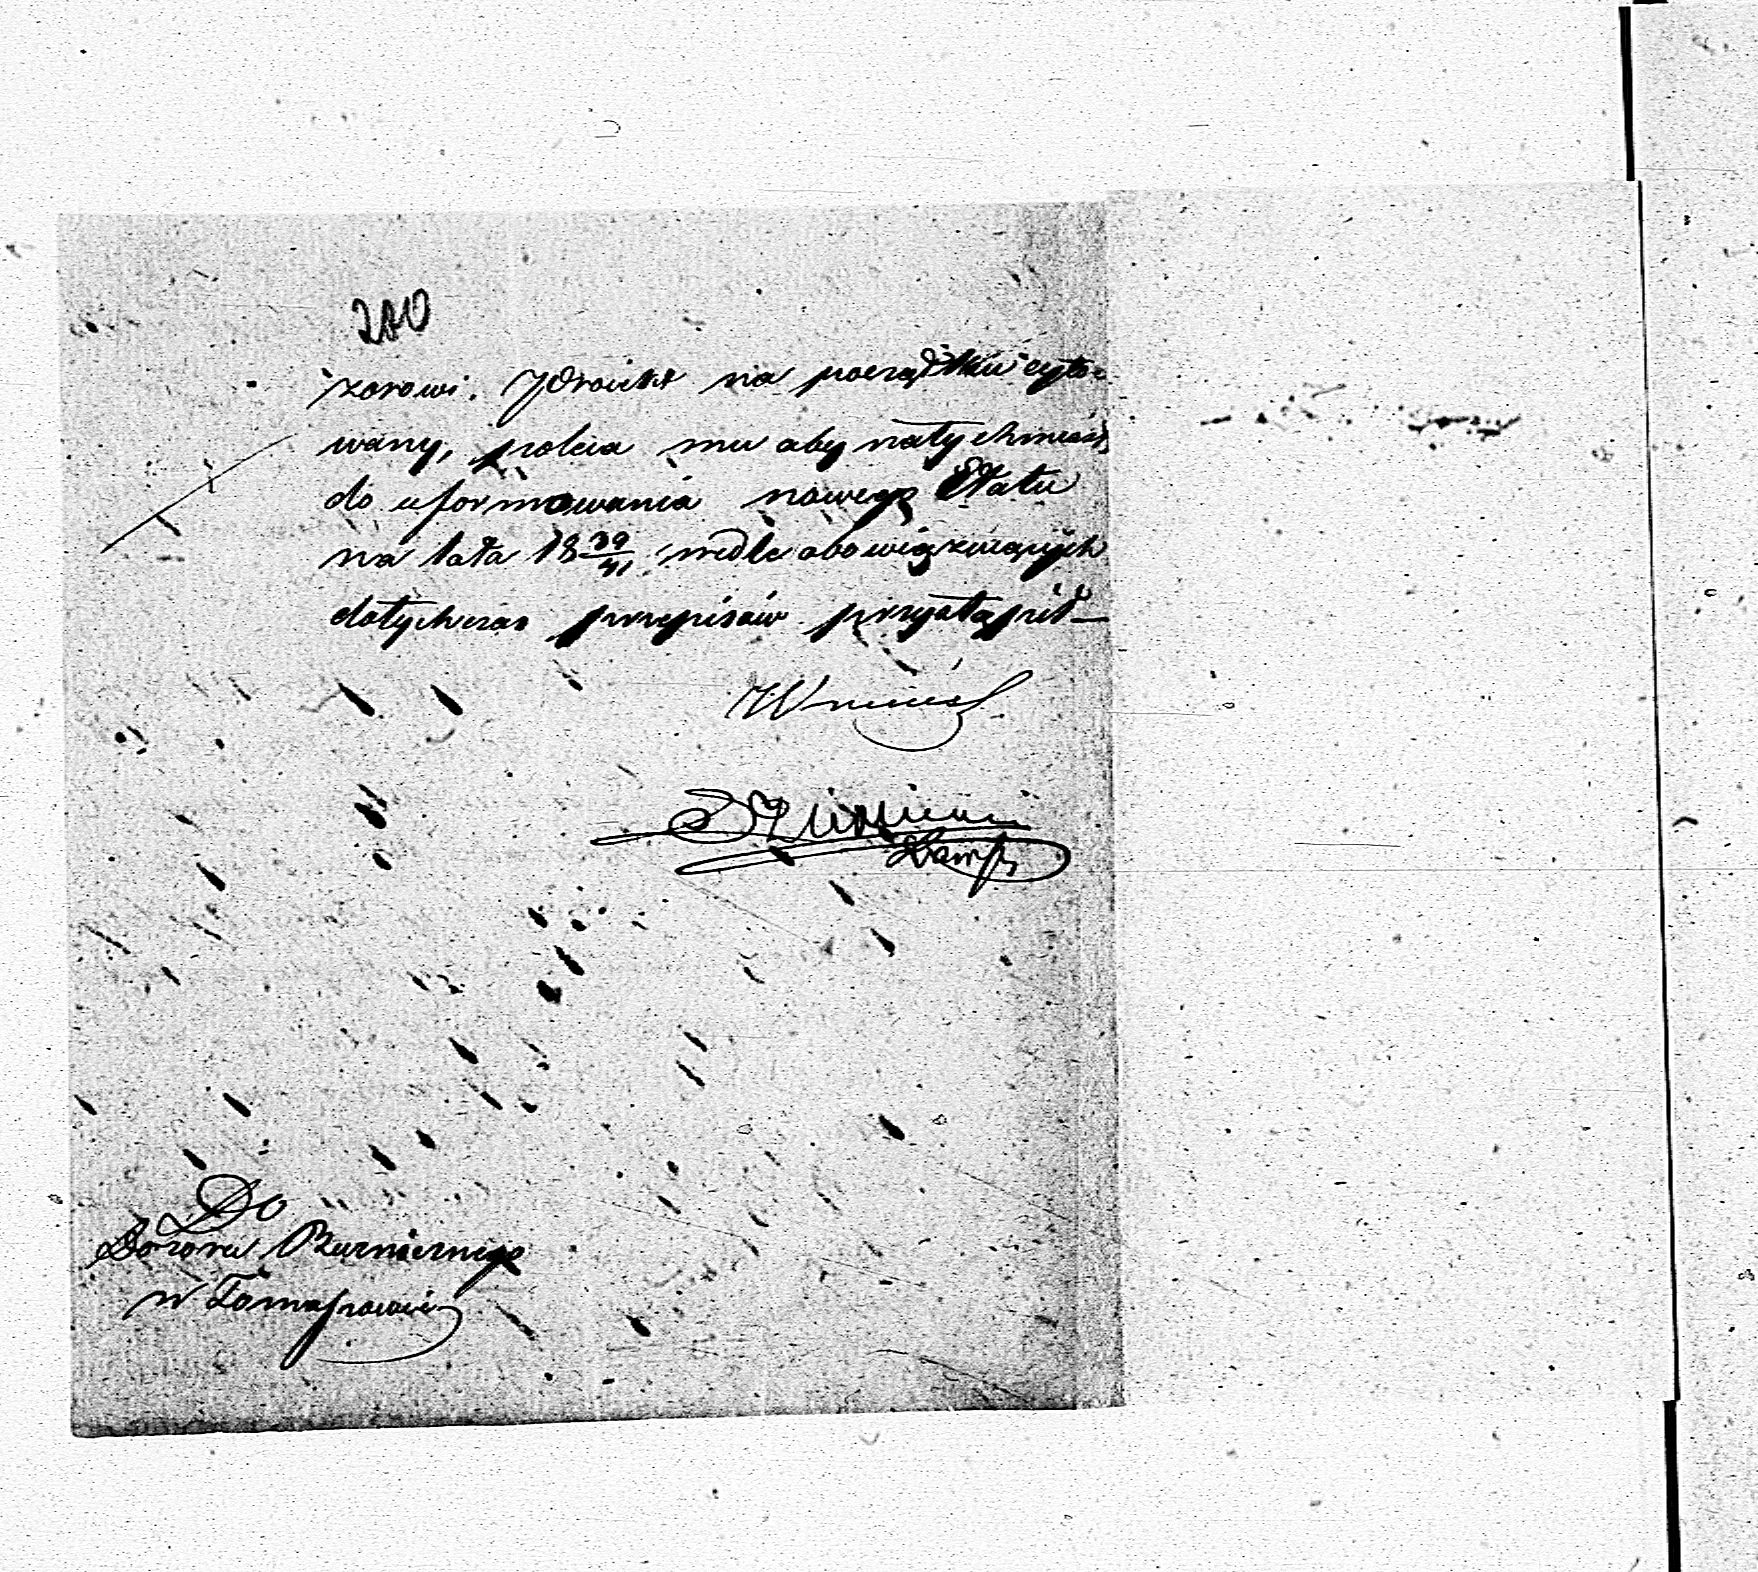 200
zorowi. Projekt na początku cyto-
wany, poleca mu aby natychmiast
do uformowania nowego Etatu
na lata 18 39/41 wedle obowiązujących
dotychczas przepisów przystąpił_
Do
Dozoru Bużniczego
w Tomaszowie